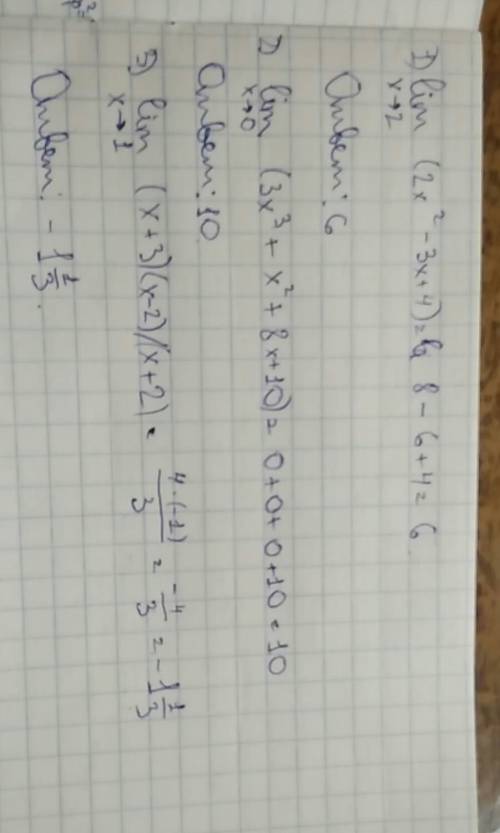 1) lim (2x² - 3x + 4) = 8 - 6 + 4 = 6
x → 2
Ответ: 6
2) lim (3x³ + x² + 8x + 10) = 0 + 0 + 0 + 10 = 10
x → 0
Ответ: 10
3) lim (x+3)(x-2)/(x+2) = 4·(-1)/3 = -4/3 = -1 1/3
x → 1
Ответ: -1 1/3.